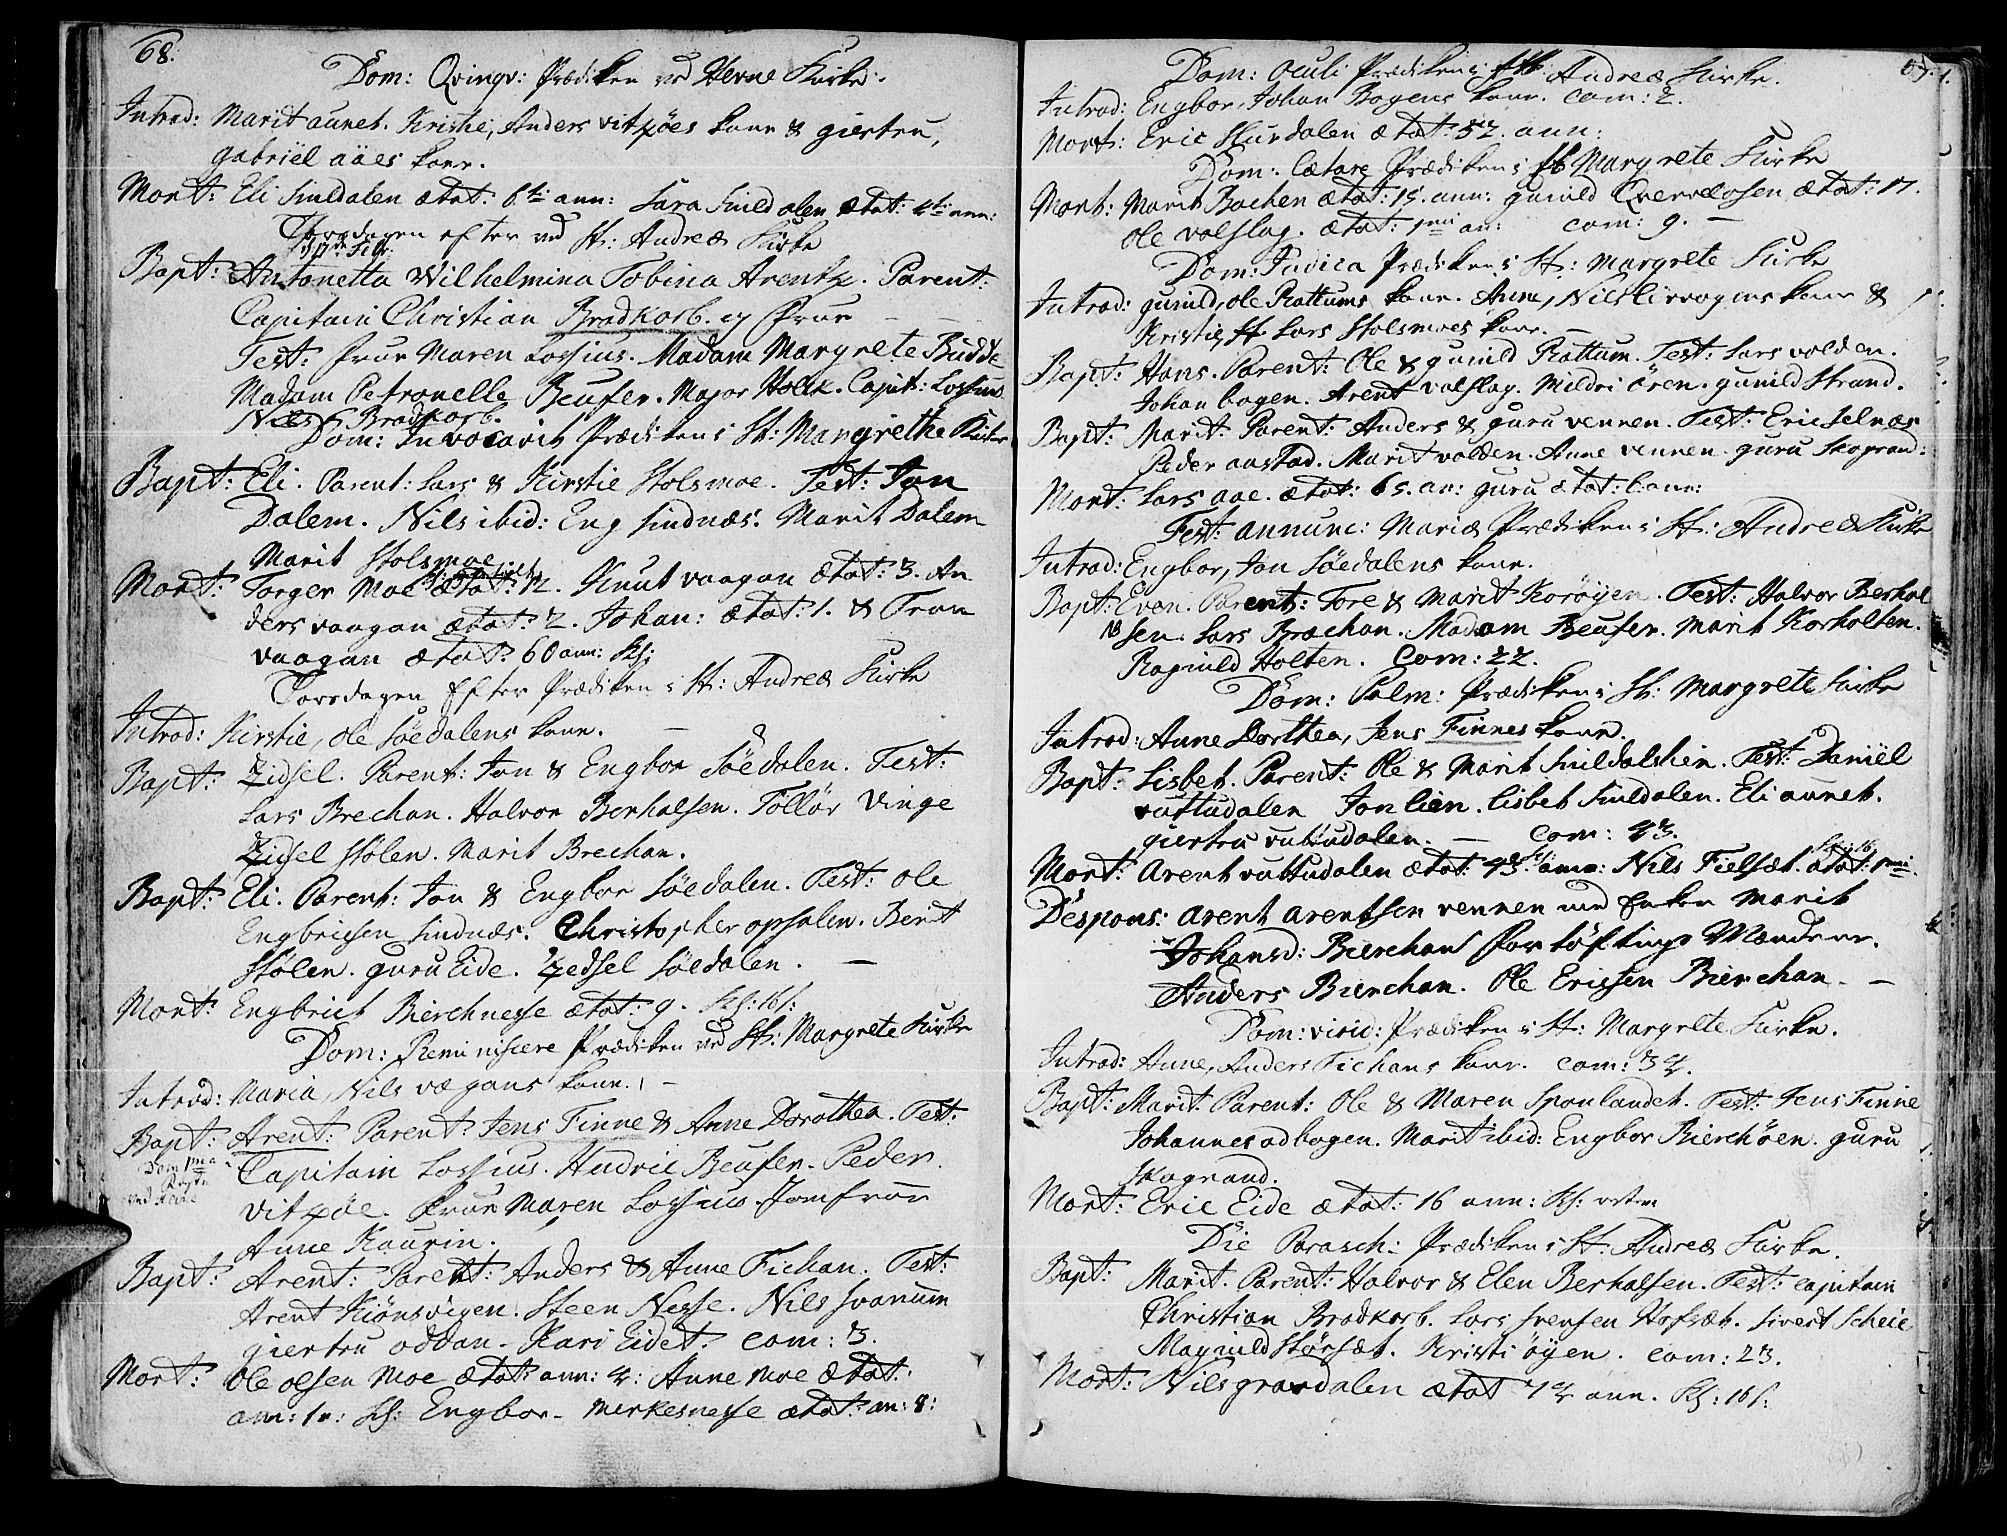 68.
Dom: Qvingv: Prædiken ved Hevne Kirke.
Introd: Marit aunet. Kristie, Anders vitzöes kone & giertru,
gabriel aaes kone.
Mort: Eli Snildalen ætat: 6ti ann: Sara Snildalen ætat: 4ti ann:
Torsdagen efter ved St: Andreæ Kirke
Bapt: Antonetta Wilhelmina Tobina Arentz. Parent:
Capitain Christian Bradkorb. og Frue
Test: Frue Maren Lossius. Madam Margrete Budde
Madam Petronelle Beufer. Major Holck. Capit: Lossius
Niels Bradkorb.
Dom: Invocavit Prædiken i St: Margrethe Kirke
Bapt: Eli. Parent: Lars & Kirstie Stolsmoe. Test: Jon
Dalem. Nils ibid: Eng sindnæs. Marit Dalem
Marit Stolsmoe
Mort: Torger Moe ætat: 12. Knut vaagan ætat: 3. An
ders vaagan ætat: 2. Johan: ætat: 1. & Tron
vaagan ætat: 60 ann:
Torsdagen Efter Prædiken i St: Andreæ Kirke
Introd: Kirstie, Ole Söedalens kone.
Bapt: Zidsel. Parent: Jon & Engbor Söedalen. Test:
Lars Brechan. Halvor Berhalsen. Tollör Vinge
Zidsel Stölen. Marit Brechan.
Bapt: Eli. Parent: Jon & Engbor Söedalen. Test: Ole
Engbricsen sindnæs. Christopher opsalen. Berit
Stölen. guru Eide. Zedsel Söedalen.
Mort: Engbrict Bierchnesse ætat: 9. Kl: 16 s:
Dom: Reminiscere Prædiken ved St: Margrete Kirke
Introd: Maria, Nils vægans kone.
Bapt: Arent: Parent: Jens Finne & Anne Dorothea. Test:
Dom 1ma
Capitain Lossius. Hudric Beufer. Peder
vitzöe. Frue Maren Lossius Jomfrue
Anne Kaurin.
Bapt: Arent: Parent: Anders & Anne Fichan. Test:
Arent Kiönsvigen. Steen Nesse. Nils svanum
giertru oddan. Kari Eidet. com: 3.
Mort: Ole olsen Moe ætat: ann: 4: Anne Moe ætat:
Engbor Merkesnesse ætat: an: 8:
Dom: Oculi Prædiken i Andreæ Kirke.
Introd: Engbor, Johan Bogens kone. com: 2.
Mort: Eric Hurdalen ætat: 52. ann:
Dom: Lætare Prædiken i St Margrete Kirke
Mort: Marit Bachen ætat: 15. ann: gunild Qvernæosen ætat: 17.
Ole valslag. ætat: 1mi an: com: 9.
Dom: Judica Prædiken i St: Margrete Kirke
Introd: gunild, Ole Rattums kone. Anne, Nils Lirvogens kone &
Kristie, Lars Stolsmoes kone.
Bapt: Hans. Parent: Ole & gunild Rattum. Test: Lars volden.
Johan bogen. Arent valslag. Mildri ören. gunild Strand.
Bapt: Marit. Parent: Anders & guru vennen. Test: Eric Selnæs
Peder aastad. Marit volden. Anne vennen. guru Skogrand:
Mort: Lars aae. ætat: 65. an: guru ætat: 6 ann:
Fest: annunc: Mariæ Prædiken i St: Andreæ Kirke
Introd: Engbor, Jon Söedalens kone.
Bapt: Even. Parent: Tore & Marit Korsöyen. Test: Halvor Berhal
sen. Lars Bræchan. Madam Beufer. Marit Korholten.
Ragnild Holten. Com: 22.
Dom: Palm: Prædiken i St: Margrete Kirke
Introd: Anne Dorthea, Jens Finnes kone.
Bapt: Lisbet. Parent: Ole & Marit Snildalslien. Test: Daniel
vuttudalen Jon lien. Lisbet Snildalen. Eli aunet.
giertru vuttudalen. com: 43.
Mort: Arent vuttudalen ætat: 43. ann: Nils Fielsæt. ætat: 1mi.
Despons: Arent Arentsen vennen med Enken Marit
Johansd: Bierchan Forlöftings Mændene.
Anders Bierchan. Ole Ericsen Bierchan.
Dom: virid: Prædiken i St: Margrete Kirke.
Introd: Anne, Anders Fichans kone. com: 34.
Bapt: Marit. Parent: Ole & Maren Sponlandet. Test: Jens Finne
Johannes adbogen. Marit ibid: Engbor Bierchöen. guru
Skogrand.
Mort: Eric Eide ætat: 16 ann:
Die Parasch: Prædiken i St: Andreæ Kirke.
Bapt: Marit. Parent: Halvor & Elen Berhalsen. Test: Capitain
Christian Bradkorb. Lars Svensen Hofsæt. Sivert Scheie
Magnild Störsæt. Kristi öyen. com: 23.
Mort: Nils grovdalen ætat 74 ann. Kl: 16 s: